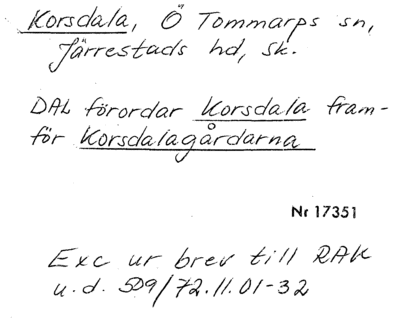 Korsdala, Ö Tommarps sn,
Järrestads hd, Sk.
DAL förordar Korsdala fram-
för Korsdalagårdarna
Nr 17351
Exc ur brev till RAK
u.d. 509/72.11.01-32